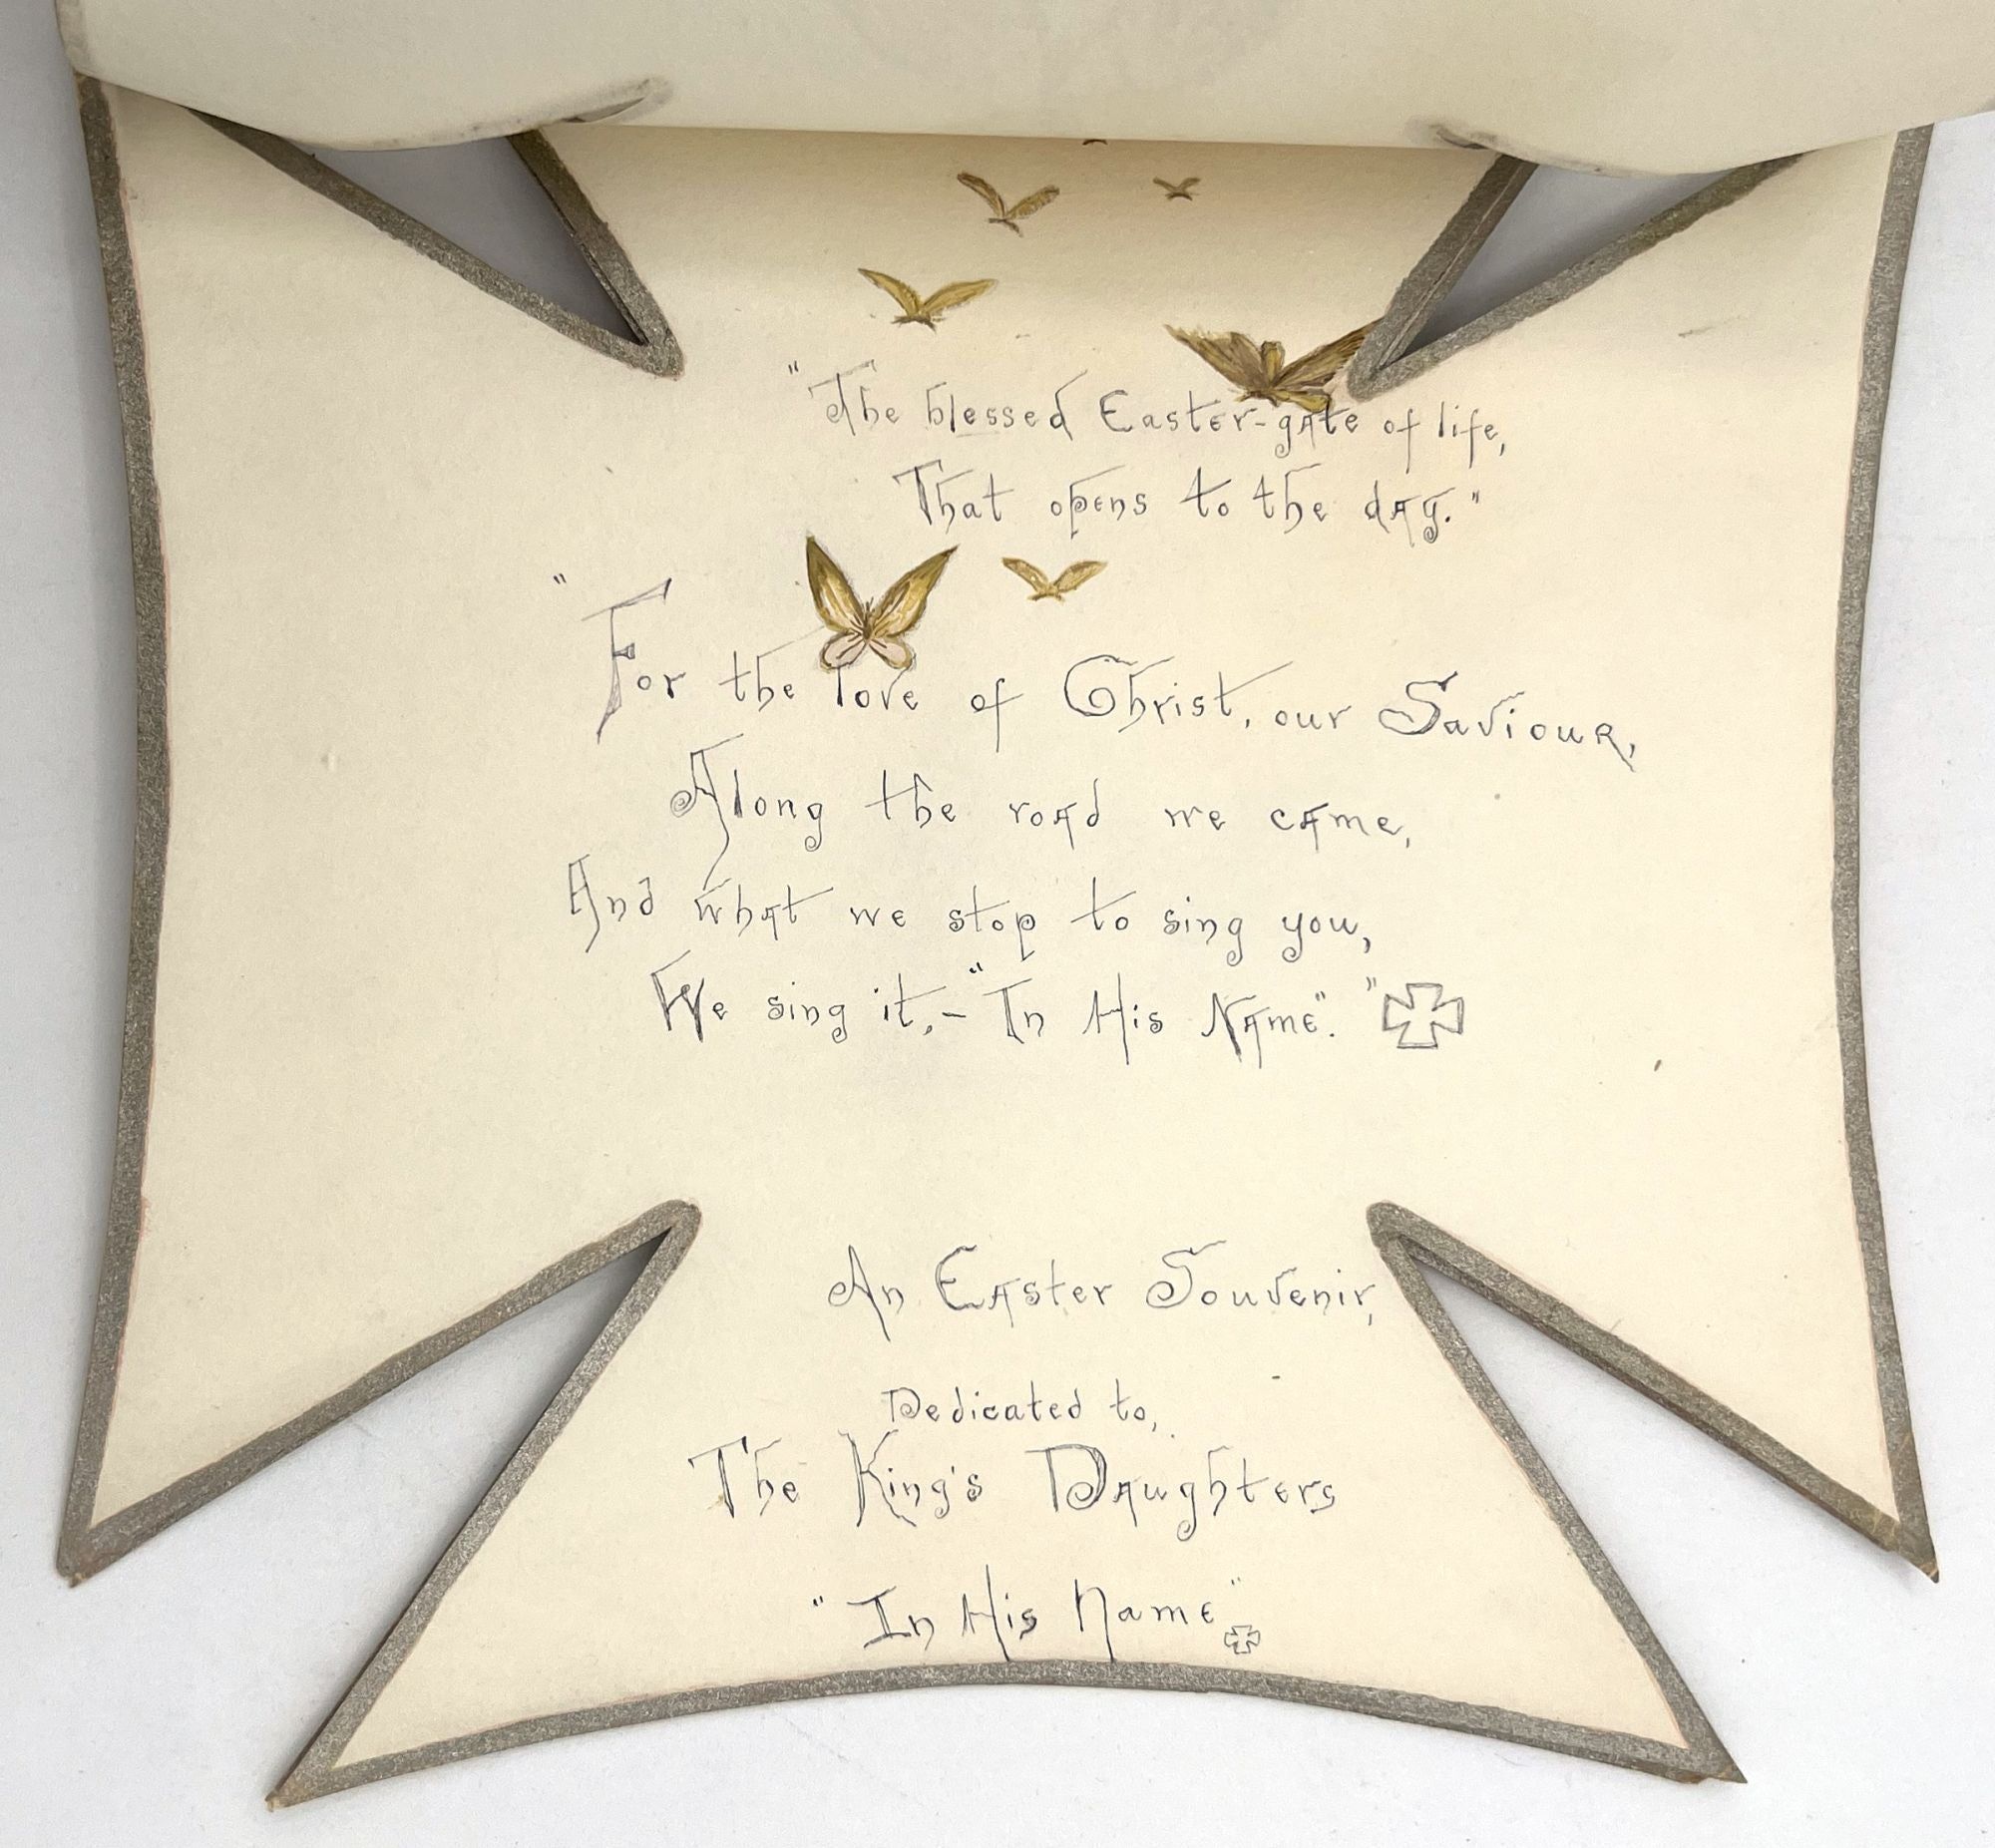 "The blessed Easter-gate of life,
That opens to the day."
"For the love of Christ, our Saviour,
Along the road we came,
And what we stop to sing you,
We sing it,- "In His Name"."
An Easter Souvenir,
Dedicated to,
The King's Daughters
"In His Name"